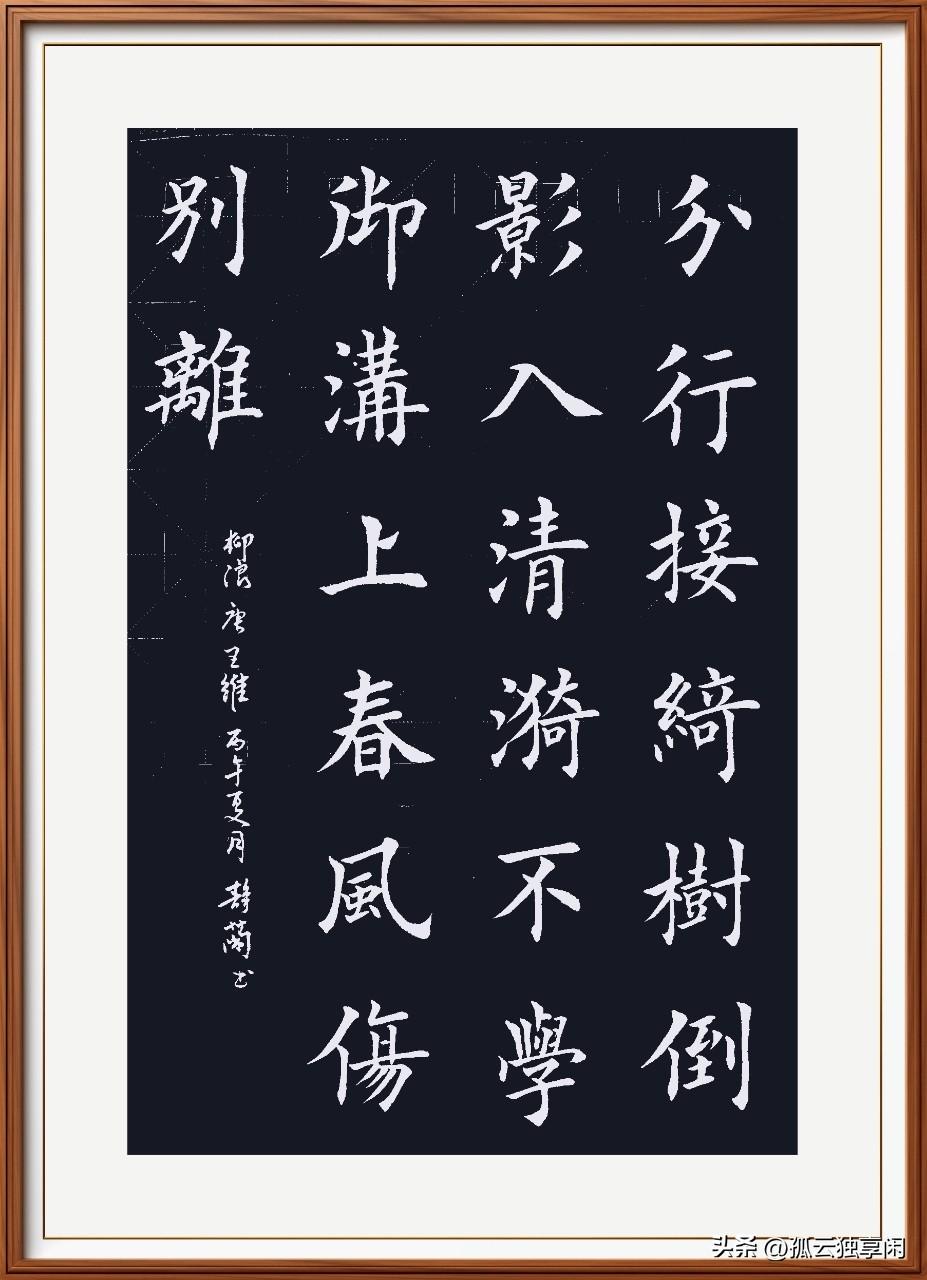 分行接綺樹倒
影入清漪不學
御溝上春風傷
別離
柳浪 唐 王維 丙午夏月 靜蘭书
头条 @孤云独享闲